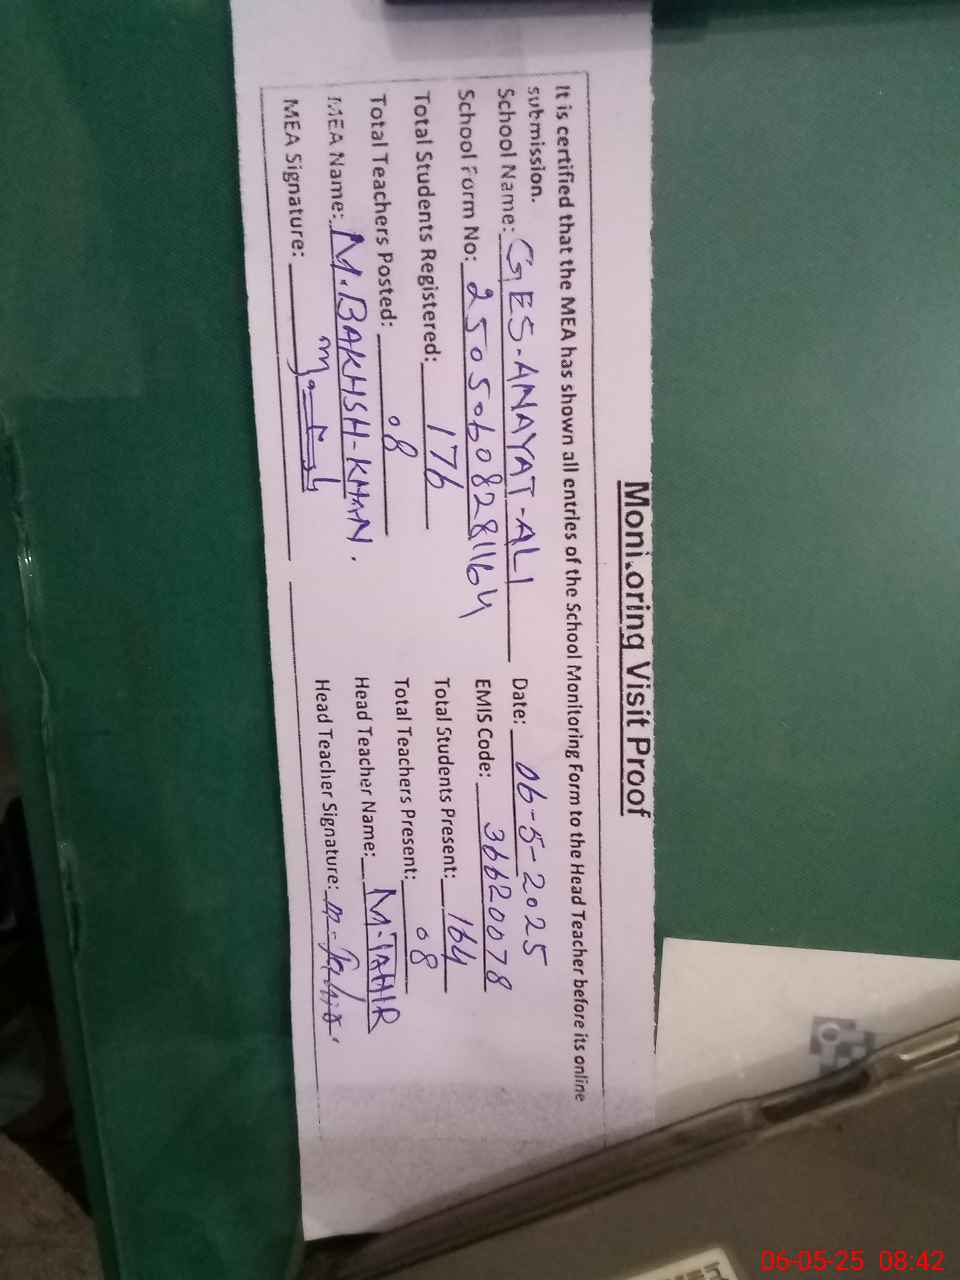 Monitoring Visit Proof
It is certified that the MEA has shown all entries of the School Monitoring Form to the Head Teacher before its online
submission.
School Name: GES-ANAYAT-ALI Date: 06-5-2025
School Form No: 25050608281164 EMIS Code: 36620078
Total Students Registered: 176 Total Students Present: 164
Total Teachers Posted: 08 Total Teachers Present: 08
MEA Name: M.BAKHSH-KHAN. Head Teacher Name: M.TAHIR
MEA Signature: Head Teacher Signature:
06-05-25 08:42